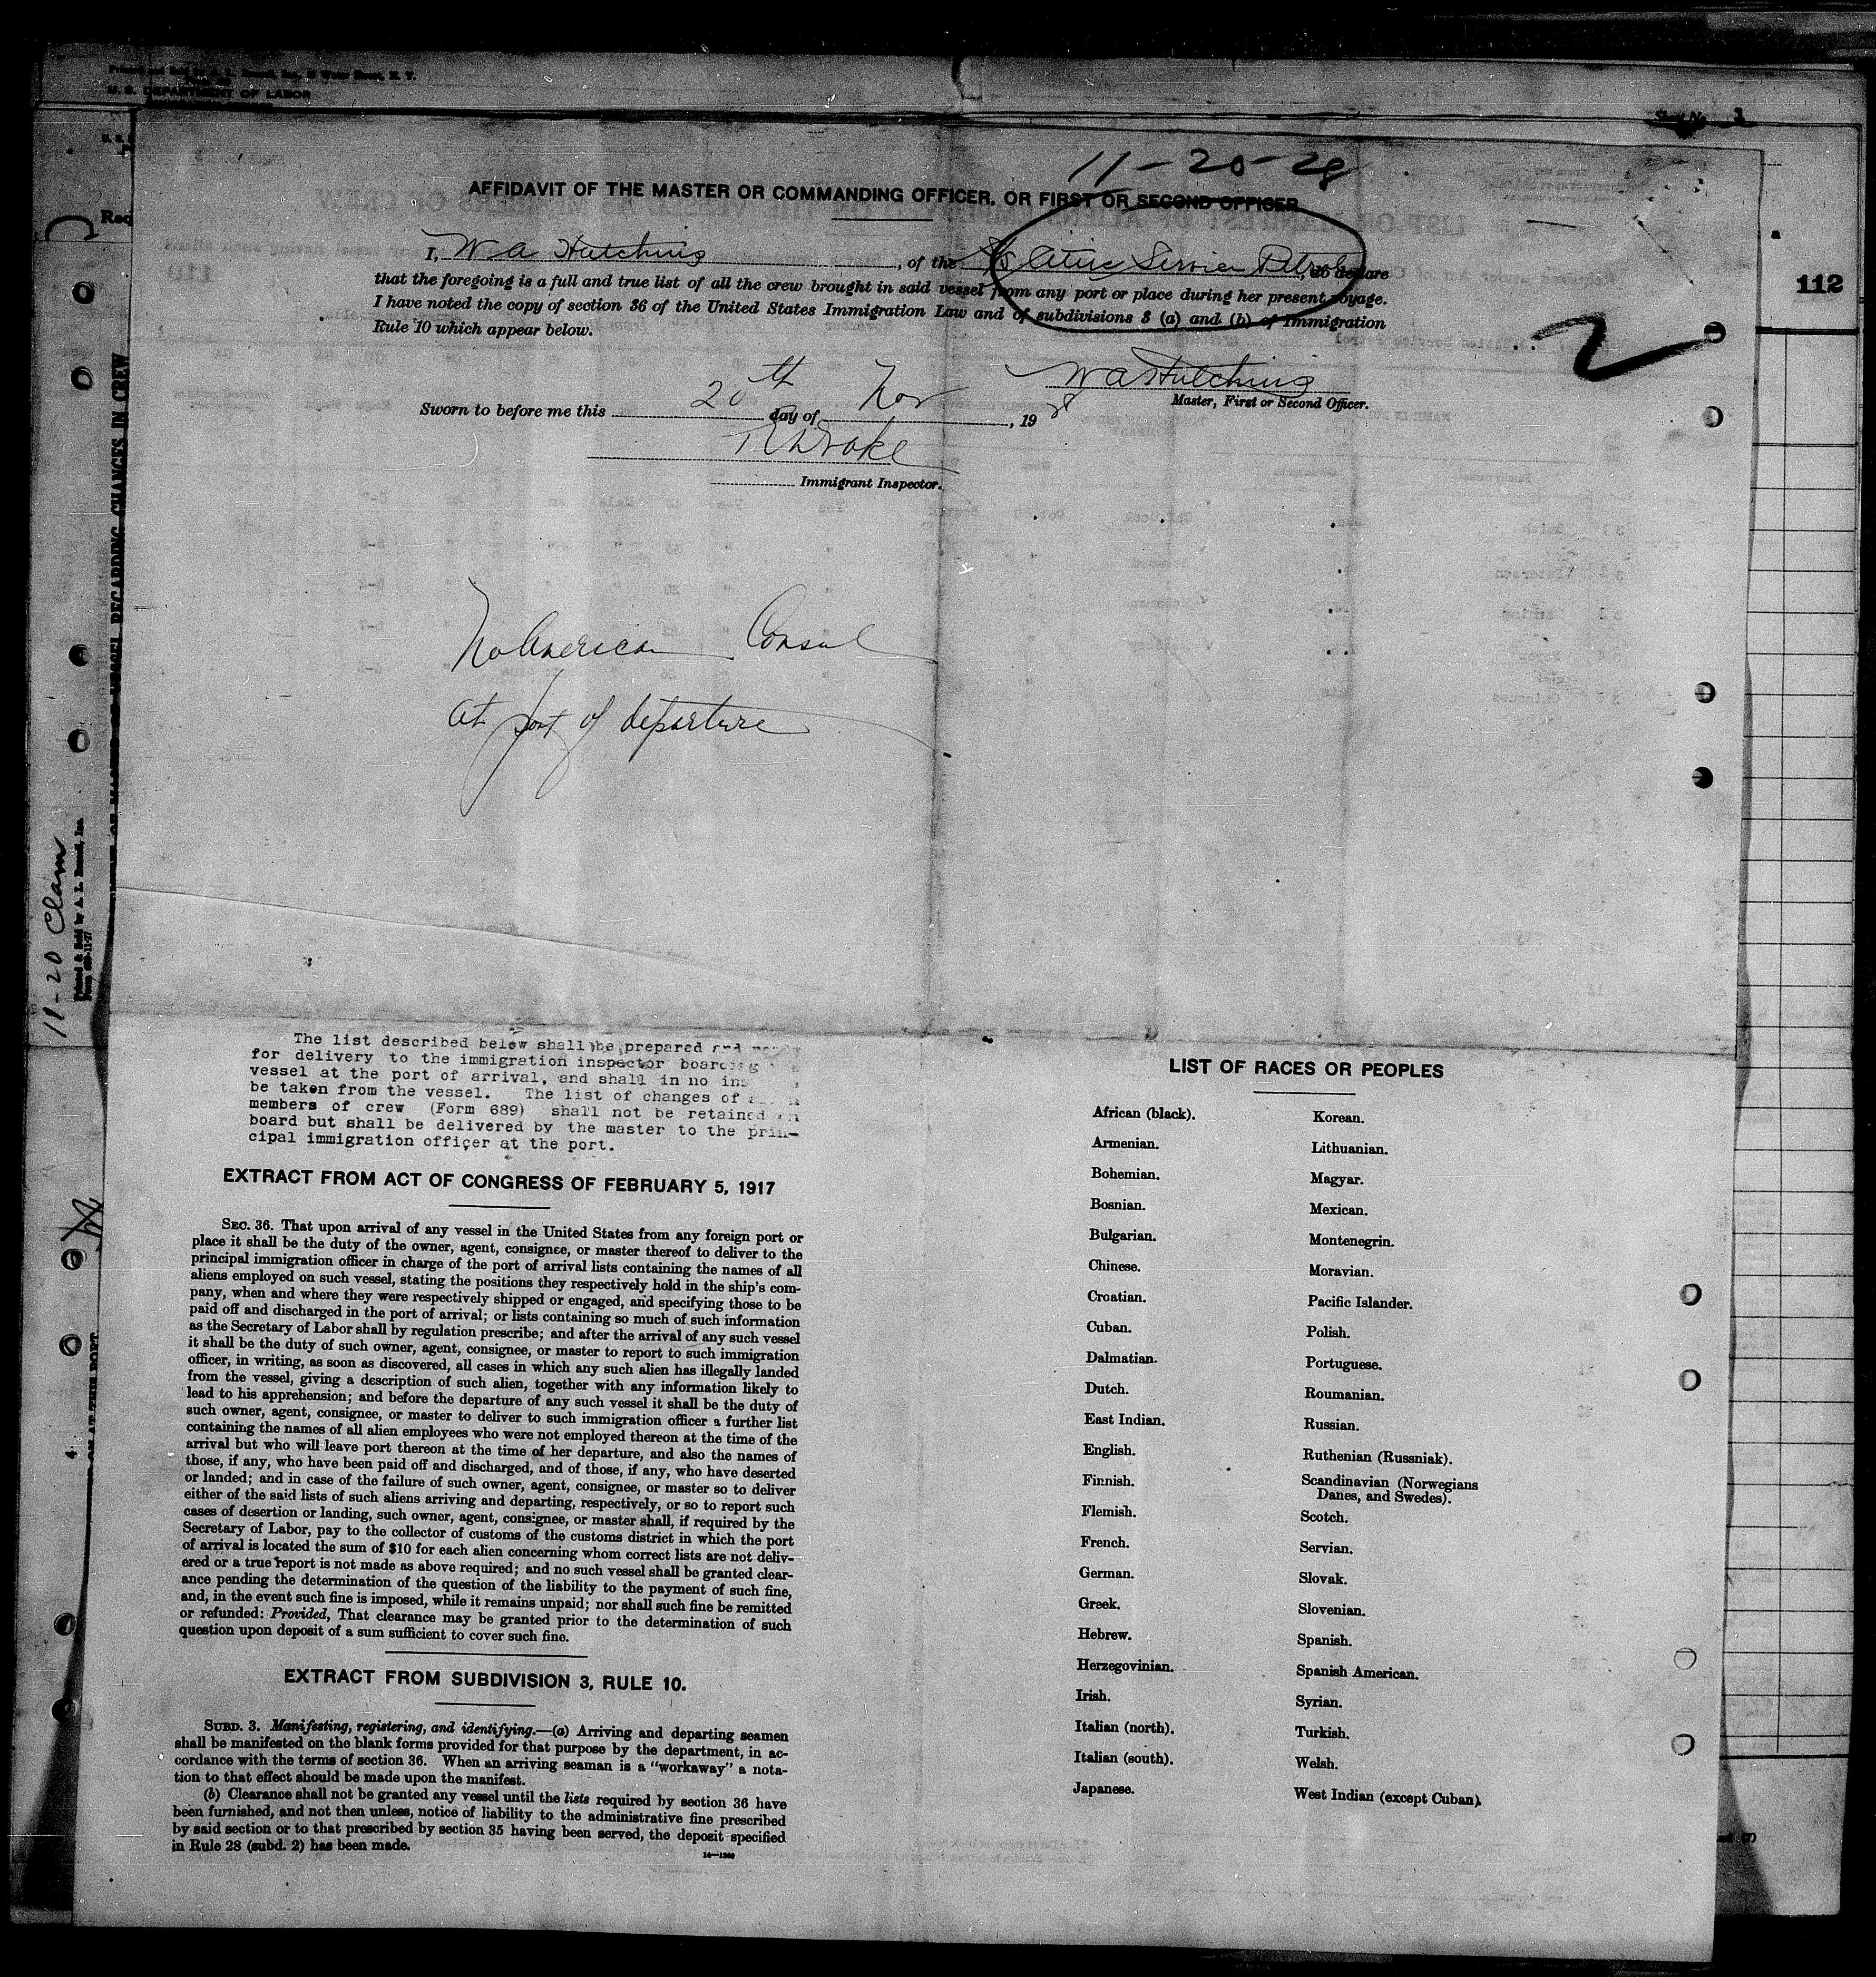 U. S. DEPARTMENT OF LABOR
Sheet No. 3
11-20-28
AFFIDAVIT OF THE MASTER OR COMMANDING OFFICER, OR FIRST OR SECOND OFFICER
I, W A Hutchins, of the S/S Cities Service Petrol, do declare
that the foregoing is a full and true list of all the crew brought in said vessel from any port or place during her present voyage.
I have noted the copy of section 36 of the United States Immigration Law and of subdivisions 3 (a) and (b) of Immigration
Rule 10 which appear below.
112
2
W A Hutchins
Master, First or Second Officer.
Sworn to before me this 20th day of Nov, 1928
Immigrant Inspector.
No American Consul
at port of departure
REGARDING CHANGES IN CREW
11-20 Clam
The list described below shall be prepared and
for delivery to the immigration inspector boarding
vessel at the port of arrival, and shall in no
be taken from the vessel. The list of changes of
members of crew (Form 689) shall not be retained
board but shall be delivered by the master to the prin-
cipal immigration officer at the port.
EXTRACT FROM ACT OF CONGRESS OF FEBRUARY 5, 1917
SEC. 36. That upon arrival of any vessel in the United States from any foreign port or
place it shall be the duty of the owner, agent, consignee, or master thereof to deliver to the
principal immigration officer in charge of the port of arrival lists containing the names of all
aliens employed on such vessel, stating the positions they respectively hold in the ship's com-
pany, when and where they were respectively shipped or engaged, and specifying those to be
paid off and discharged in the port of arrival; or lists containing so much of such information
as the Secretary of Labor shall by regulation prescribe; and after the arrival of any such vessel
it shall be the duty of such owner, agent, consignee, or master to report to such immigration
officer, in writing, as soon as discovered, all cases in which any such alien has illegally landed
from the vessel, giving a description of such alien, together with any information likely to
lead to his apprehension; and before the departure of any such vessel it shall be the duty of
such owner, agent, consignee, or master to deliver to such immigration officer a further list
containing the names of all alien employees who were not employed thereon at the time of the
arrival but who will leave port thereon at the time of her departure, and also the names of
those, if any, who have been paid off and discharged, and of those, if any, who have deserted
or landed; and in case of the failure of such owner, agent, consignee, or master so to deliver
either of the said lists of such aliens arriving and departing, respectively, or so to report such
cases of desertion or landing, such owner, agent, consignee, or master shall, if required by the
Secretary of Labor, pay to the collector of customs of the customs district in which the port
of arrival is located the sum of $10 for each alien concerning whom correct lists are not deliv-
ered or a true report is not made as above required; and no such vessel shall be granted clear-
ance pending the determination of the question of the liability to the payment of such fine,
and, in the event such fine is imposed, while it remains unpaid; nor shall such fine be remitted
or refunded: Provided, That clearance may be granted prior to the determination of such
question upon deposit of a sum sufficient to cover such fine.
EXTRACT FROM SUBDIVISION 3, RULE 10.
SUBD. 3. Manifesting, registering, and identifying.—(a) Arriving and departing seamen
shall be manifested on the blank forms provided for that purpose by the department, in ac-
cordance with the terms of section 36. When an arriving seaman is a "workaway" a nota-
tion to that effect should be made upon the manifest.
(b) Clearance shall not be granted any vessel until the lists required by section 36 have
been furnished, and not then unless, notice of liability to the administrative fine prescribed
by said section or to that prescribed by section 35 having been served, the deposit specified
in Rule 28 (subd. 2) has been made.
LIST OF RACES OR PEOPLES
African (black).
Armenian.
Bohemian.
Bosnian.
Bulgarian.
Chinese.
Croatian.
Cuban.
Dalmatian.
Dutch.
East Indian.
English.
Finnish.
Flemish.
French.
German.
Greek.
Hebrew.
Herzegovinian.
Irish.
Italian (north).
Italian (south).
Japanese.
Korean.
Lithuanian.
Magyar.
Mexican.
Montenegrin.
Moravian.
Pacific Islander.
Polish.
Portuguese.
Roumanian.
Russian.
Ruthenian (Russniak).
Scandinavian (Norwegians
Danes, and Swedes).
Scotch.
Servian.
Slovak.
Slovenian.
Spanish.
Spanish American.
Syrian.
Turkish.
Welsh.
West Indian (except Cuban).